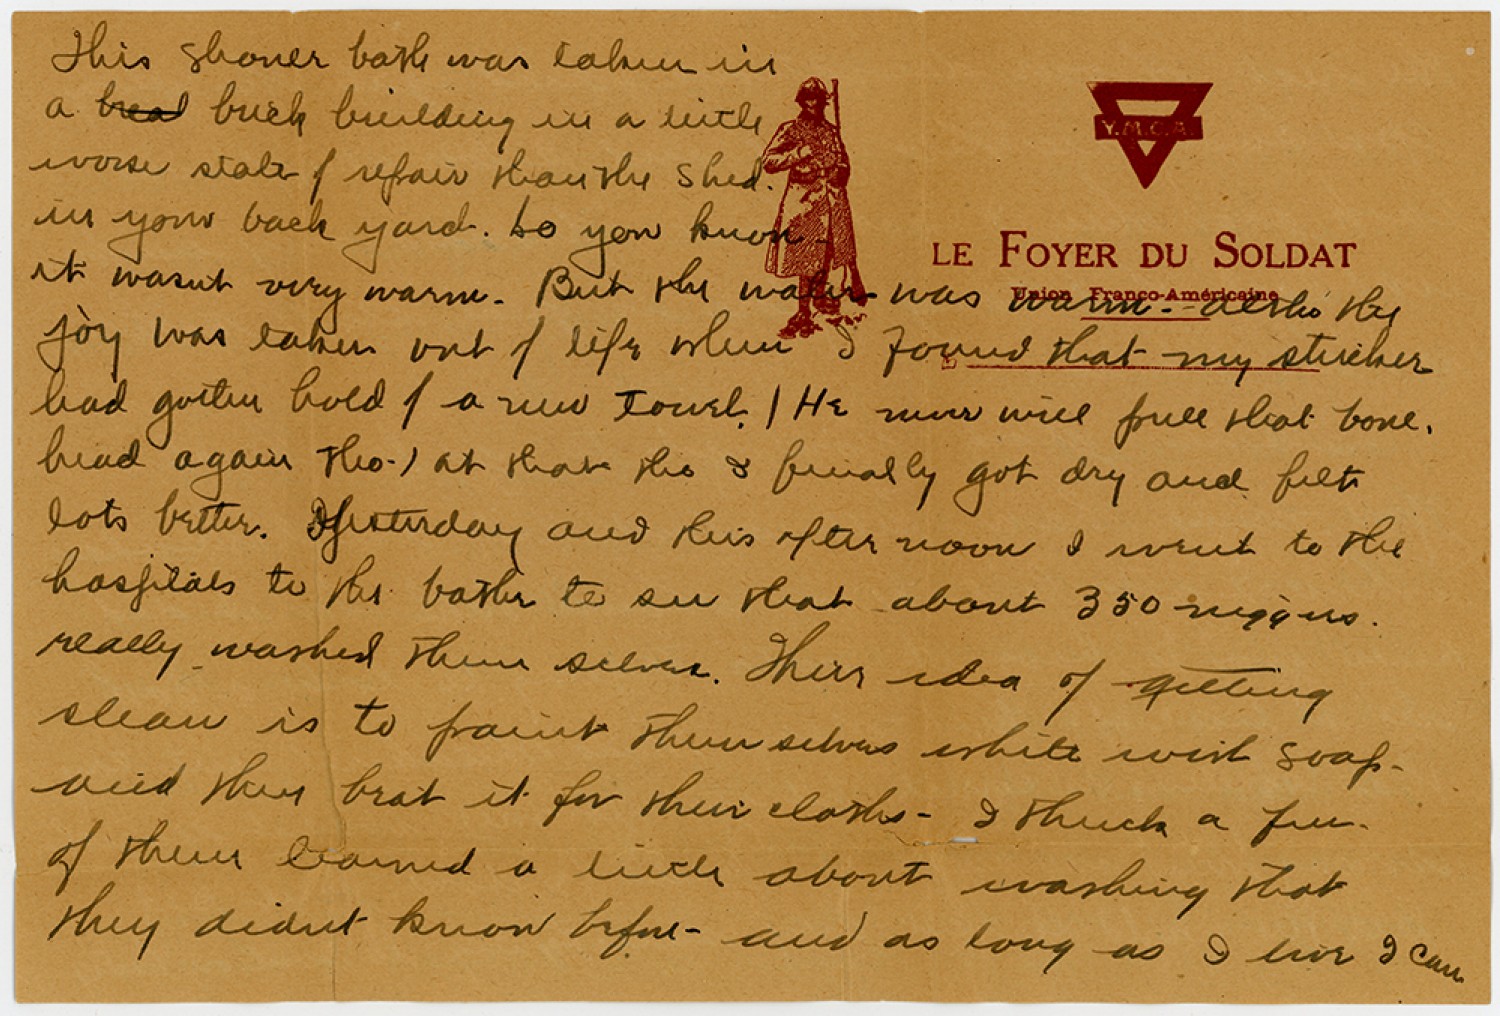 This shower bath was taken in
a bread brick building in a little
worse state of repair than the shed.
in your back yard. So you know -
it wasnt very warm. But the water was warm - altho' the
joy was taken out of life when I found that my striker
had gotten hold of a new towel. (He never will pull that bone.
head again tho.) at that tho I finally got dry and felt
lots better. Yesterday and this afternoon I went to the
hospitals to the baths to see that about 350 niggers.
really washed them selves. Their idea of getting
clean is to paint themselves white with soap -
and then beat it for their cloths - I think a few.
of them learned a little about washing that
they didnt know before - and as long as I live I can
Y.M.C.A.
LE FOYER DU SOLDAT
Union Franco-Américaine